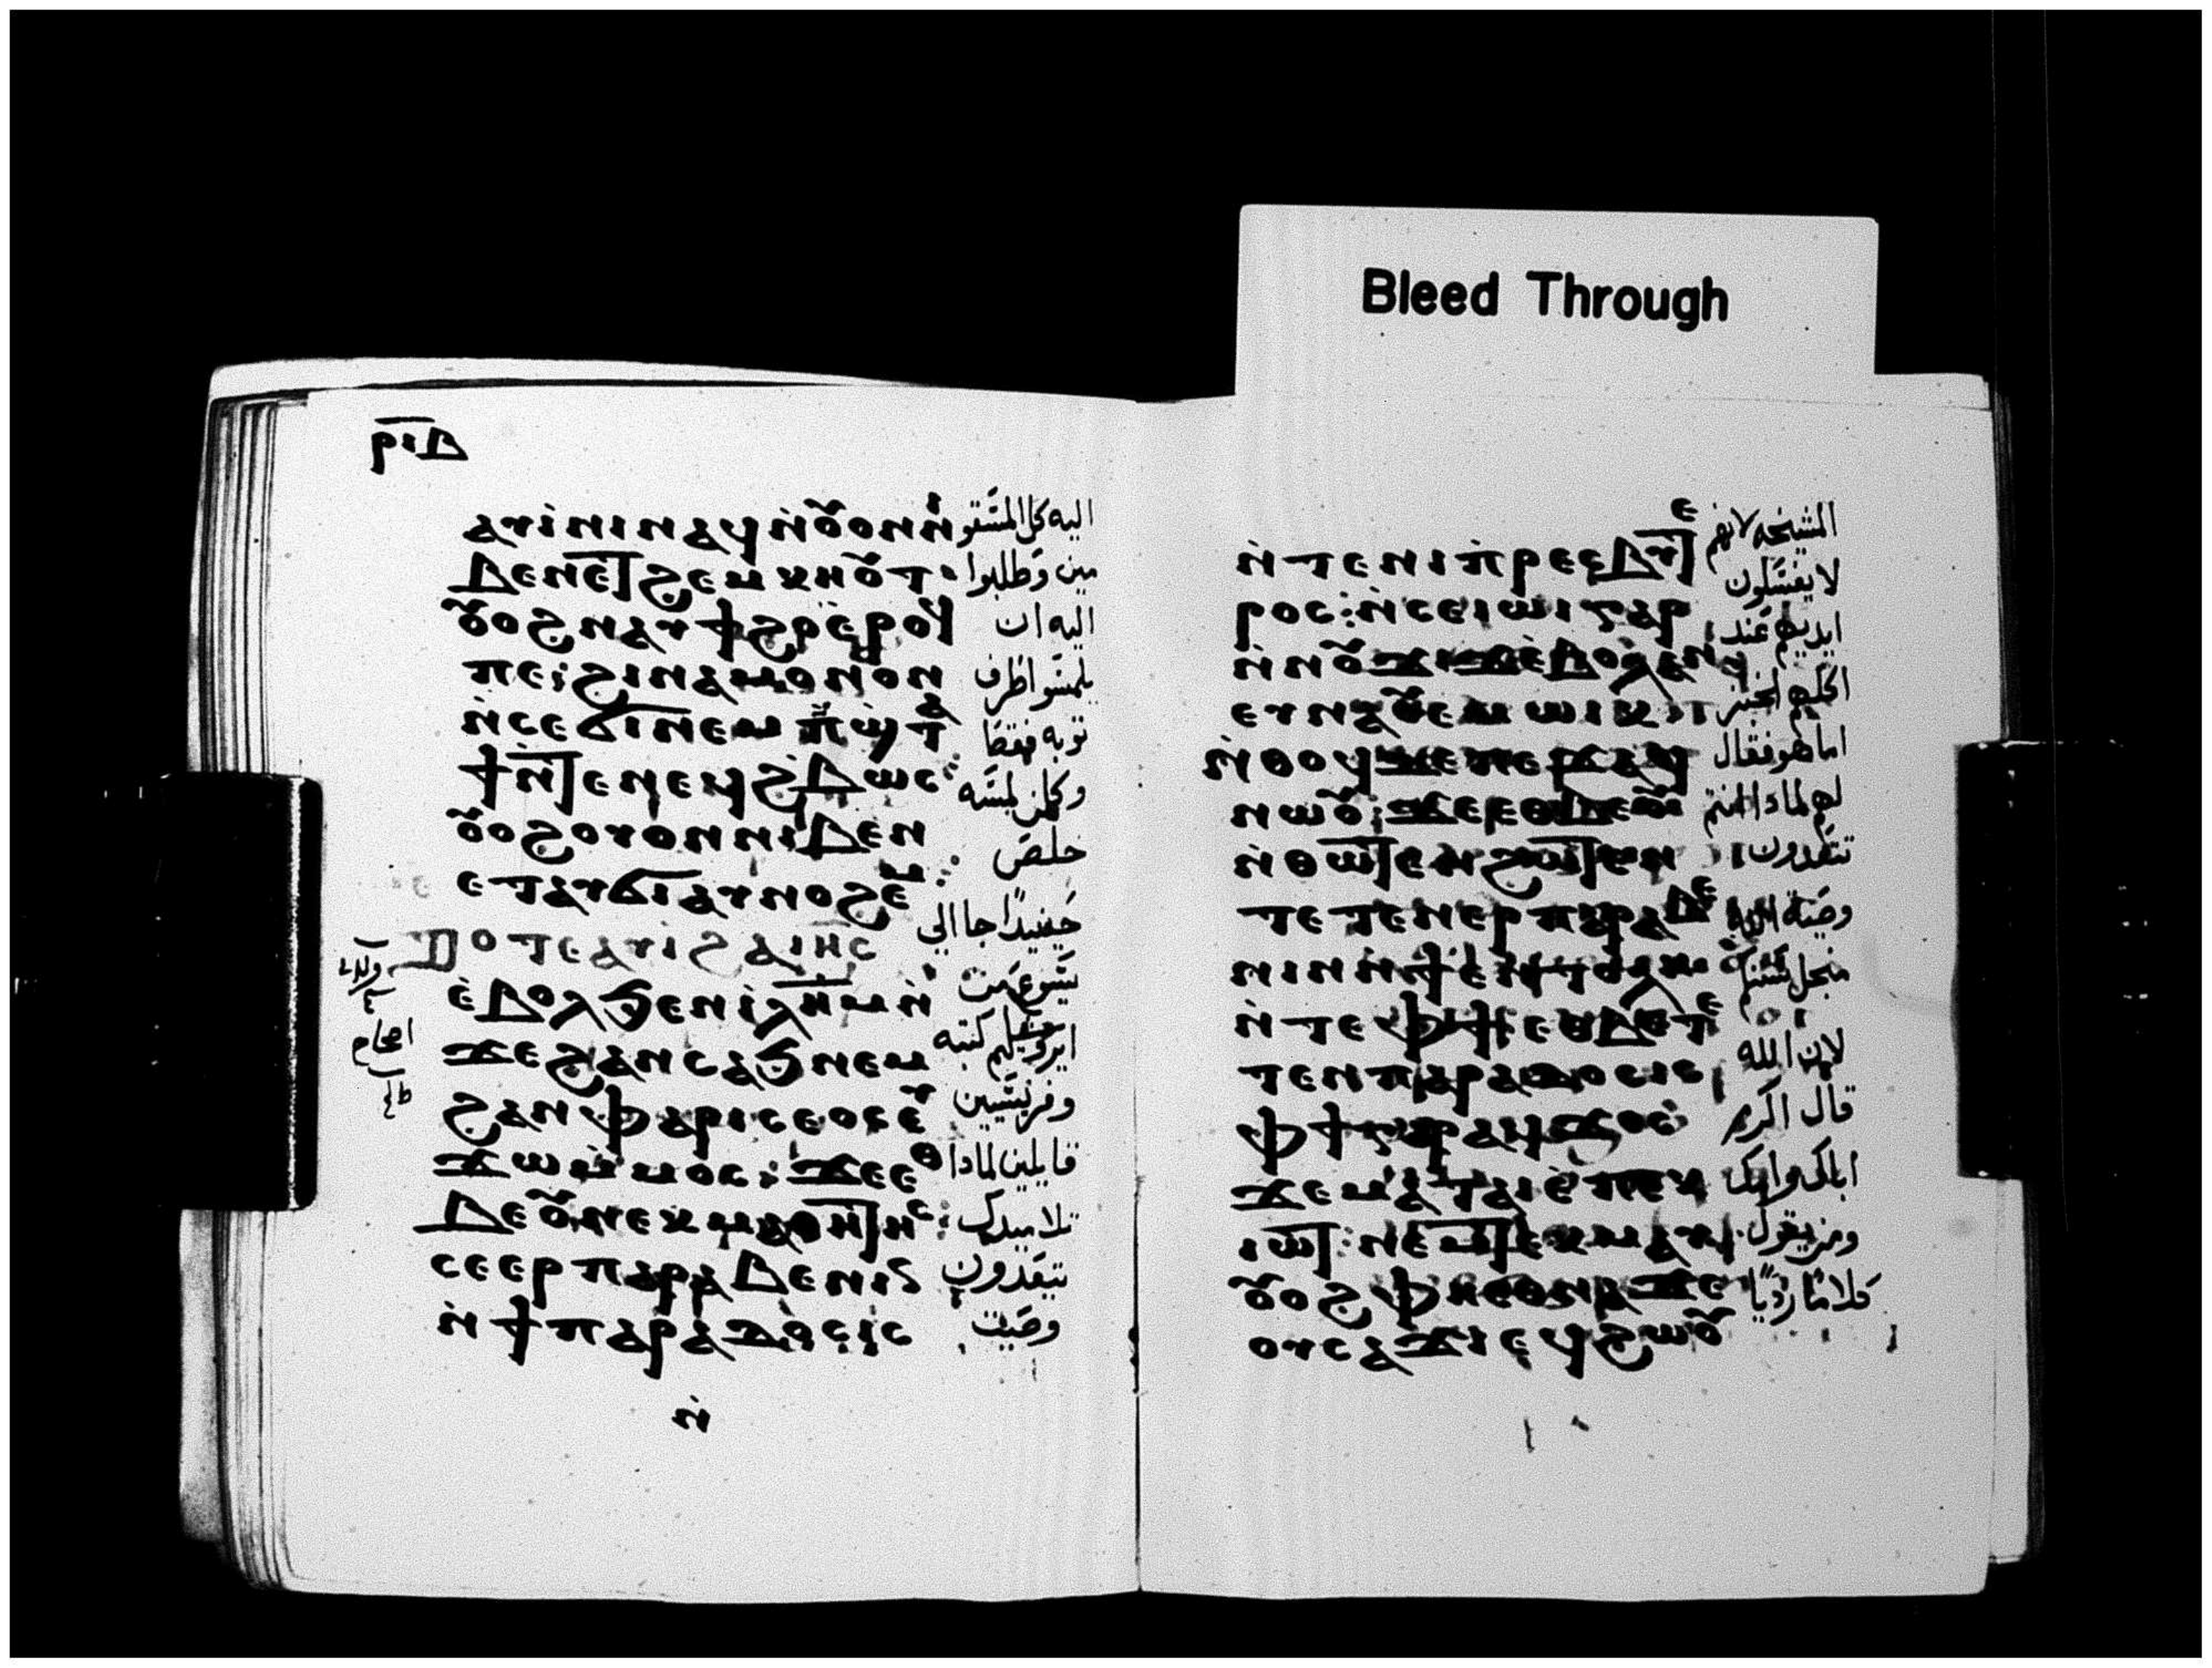 Bleed Through
ⲣⲓⲃ
ⲁⲩⲓⲛⲓ ⲛⲁϥ ⲛ̀ⲟⲩⲟⲛ ⲛ
ⲃⲉⲛ ⲉⲧϩⲉⲙⲕⲏⲟⲩⲧ
ⲟⲩⲟϩ ⲛⲁⲩϯϩⲟ ⲉⲣⲟϥ
ⲡⲉ: ϩⲓⲛⲁ ⲙⲟⲛⲟⲛ
ⲛ̀ⲥⲉϭⲓ ⲛⲉⲙ ⲡ̀ϣⲧⲁ
ⲧ̀ⲛ̀ⲧⲉ ⲡⲉϥϩ̀ⲃⲱⲥ:
ⲟⲩⲟϩ ⲟⲩⲟⲛ ⲛⲓⲃⲉⲛ
ⲉⲧⲁⲩϭⲓ ⲁⲩⲛⲟϩⲉⲙ:
ⲧⲟⲧⲉ ⲁⲩⲓ ϩⲁ ⲓⲏⲥ
ⲉ̀ⲃⲟⲗ ϧⲉⲛ ⲓ̀ⲗⲏⲙ ⲛ̀
ϫⲉ ϩⲁⲛⲥⲁϧ ⲛⲉⲙ
ϩⲁⲛⲫⲁⲣⲓⲥⲉⲟⲥ ⲉⲩ
ϫⲱ ⲙ̀ⲙⲟⲥ: ϫⲉ ⲉⲑ
ⲃⲉⲟⲩ ⲛⲉⲕⲙⲁⲑⲏⲧⲏⲥ:
ⲥⲉⲉⲣⲡⲁⲣⲁⲃⲉⲛⲓⲛ
ⲛ̀ϯⲡⲁⲣⲁⲇⲟⲥⲓⲥ
ⲛ̀
اليه كل المسقو
مين وطلبوا
اليه ان
يلمسوا طرف
ثوبه فقط
وكلمن لمسه
خلص
حينيدًا جا الي
يسوع من
ايروشليم كتبه
وفريسيين
قايلين لماذا
تلاميدك
يتعدون
وصيت
ⲛ̀ⲧⲉ ⲛⲓⲡ̀ⲣⲉⲥⲃⲩⲧⲉ
ⲣⲟⲥ: ⲛ̀ⲥⲉⲓⲱⲓ ⲅⲁⲣ
ⲛ̀ⲛⲟⲩϫⲓϫ ⲉ̀ⲃⲟⲗ ⲁⲛ
ⲉⲩⲛⲁⲟⲩⲉⲙ ⲱⲓⲕ
ⲛ̀ⲑⲟϥ ⲇⲉ ⲡⲉϫⲁϥ
ⲛⲱⲟⲩ: ϫⲉ ⲉⲑⲃⲉⲟⲩ
ⲛ̀ⲑⲱⲧⲉⲛ ϩⲱⲧⲉⲛ
ⲧⲉⲧⲉⲛⲉⲣⲡⲁⲣⲁⲃⲉ
ⲛⲓⲛ ⲛ̀ϯⲉⲛⲧⲟⲗⲏ
ⲛ̀ⲧⲉ ⲫϯ ⲉⲑⲃⲉ ⲧⲉ
ⲧⲉⲛⲡⲁⲣⲁⲇⲟⲥⲓⲥ
ⲫϯ ⲅⲁⲣ ⲁϥϫⲟⲥ
ϫⲉ ⲙⲁⲧⲁⲓⲉ̀ ⲡⲉⲕ
ⲓⲱⲧ: ⲛⲉⲙ ⲧⲉⲕⲙⲁⲩ
ⲟⲩⲟϩ ⲫⲏⲉⲑⲛⲁϫⲉ
ⲟⲩⲥⲁϫⲓ ⲉϥϩⲱⲟⲩ
المشيخه لانهم
لا يغسلون
ايديهم عند
اكلهم الخبز
اما هو فقال
لهم لماذا انتم
تتعدون
وصية الله
منجل سننكم
لان الله
قال اكرم
اباك وامك
ومن يقول
كلامًا رديًا